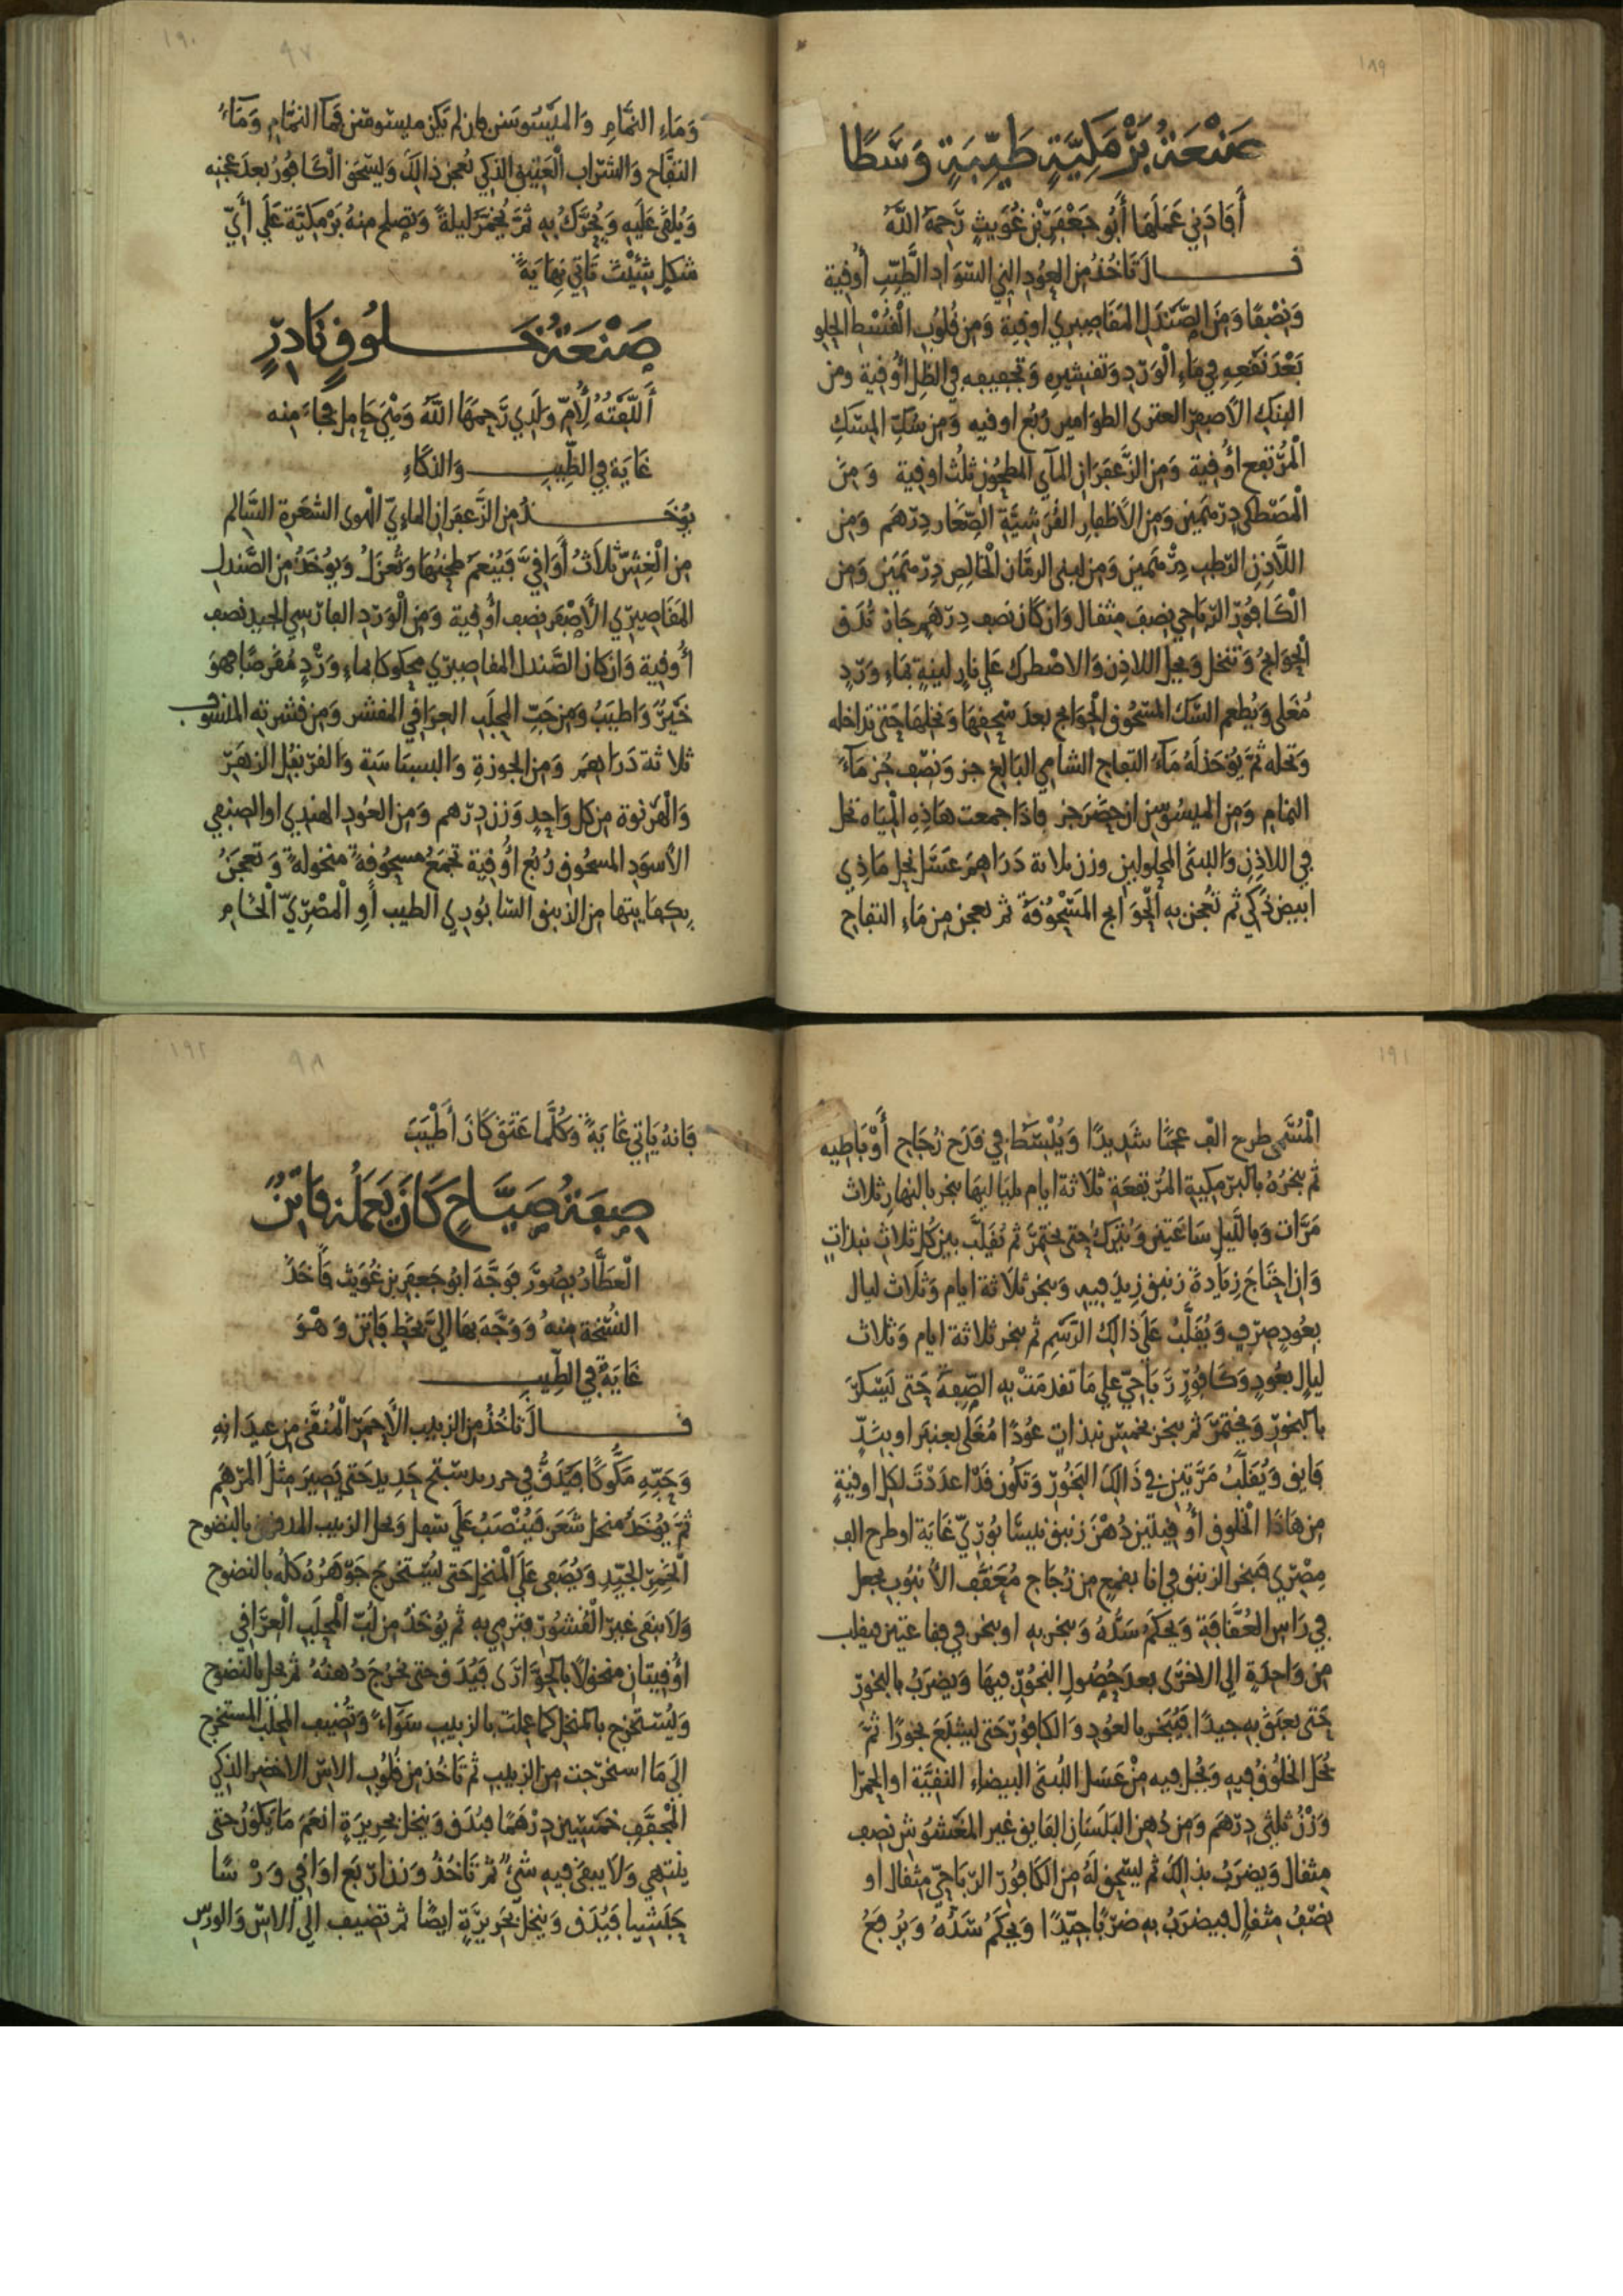 ١٨٩
صَنْعَةُ بَرْمَكِيَّةٍ طَيِّبَةٍ وَسَطًا
أَفَادَنِي عَمَلَهَا أَبُو جَعْفَرِ بْنِ غُوَيثٍ رَّحِمَهُ اللَّهُ
قــال تَاخُذُ مِنَ العُودِ النِي السَّوَاد الطَّيِّبِ أُوقِية
وَنِصْفًا وَمِنَ الصَّنْدَلِ المَقَاصِيرِي اوقِية وَمِن قُلُوبِ الْقُسْطِ الحِلو
بَعْدَ نَقْعِهِ فِي مَاءِ الْوَرْدِ وَتَقشِيرِهِ وَتَجفِيفِهِ فِي الظِلِ أُوقِية ومن
البنك الأصفر الطوامير رُبُع اوقيه وَمِن سُكِّ المِسْكِ
الْمُرْتفع اُوقِية وَمِنَ الزَّعْفَرَانِ المآي المطحُون ثُلُث اوقِية وَمِنَ
الْمَصْطَكى دِرْهَمَيْن وَمِنَ الأَظفارِ القُرَشِيَّةِ الصِّغَار دِرْهَم وَمِن
اللَّاذِنِ الرَّطب دِرْهَمَيْن وَمِن لبنى الرمَّان الْخَالِص دِرْهَمَيْن وَمِن
الْكَافُورِ الرَّبَاحِي نِصْفَ مِثقال وَان كَانَ نصف دِرْهَمٍ جَاز تُدَق
الْحَوَايج وَتنخل ويحل اللاذِن وَالاصْطرك عَلى نارٍ لَينةٍ بِمَاءِ وَرْدٍ
مُغلى وَيُطعم السُّك المَسْحُوق الحَوَايج بعد سَحِقِهَا وَنَخلِهَا حَتى تداخله
وَتحله ثمَّ يُوخَذ لَهُ مَآءُ التفاح الشامِي البَالِغ جز وَنِصْف جُز مَآءُ
النمام وَمِنَ الميسُوسَن ان حَضَر جز فاذَا جمعت هَاذِهِ الْمِيَاه تحل
فِي اللاذِنِ وَاللبنَى المحلولين وزن ثلاثة دَرَاهِمَ عَسَل نحل مَاذِي
ابيض ذَكِي ثم تُعجن بِهِ الْحَوَايج المَسْحُوقَةُ ثم تعجن مِن مَاءِ التفاح
١٩٠
٩٧
وَمَاءِ النمَّامِ وَالمَيْسُوسَن فان لم يَكن ميسوسَن فَمَا النمَّامِ وَمَآءُ
التفَّاح وَالشرَاب الْعَتِيقِ الذكي تُعجن ذَالِكَ وَيُسْحَق الْكَافُورُ بعدَ عجنِهِ
وَيُلقَى عَلَيهِ وَيُحَرَّك بِهِ ثمَّ يُخمَّر ليلةً وَتصلح مِنهُ بَرْمَكِيَّة عَلَى أَيِّ
شكلٍ شِئْت تَاتِي نِهَايَةً
صَنْعَةُ خَــلُوقٍ نَادِرٍ
أَلَّفْتُهُ لِأُمِّ وَلَدِي رَّحِمَهَا اللَّهُ وَهْيَ حَامِل فجاءَ مِنه
غَايَة فِي الطِّيبِ وَالذكَاءِ
يُوخَــذُ مِنَ الزَّعفَرانِ الماءِيّ الشعَرةِ السَّالم
مِنَ الْغِشِّ ثَلَاثُ أَوَاقِيَّ فَيُنعَمُ طحنُهَا وَتُعزَلُ وَيُوخَذُ مِنَ الصَّندل
المَقَاصِيرِي الأَصْفَر نِصف أُوقِية وَمِنَ الْوَرْدِ الفارسِي الجيد نصف
أُوقِية وَان كانَ الصَّندل المقاصِيري محكوكا بماءِ وَرْدٍ مُقَرصًا فهوَ
خَيْرٌ وَاطيَبُ وَمِن حَبِّ المحلَبِ العِرَاقِي المقشر وَمِن قشرتِهِ المنسوب
ثلاثة دَرَاهِمَ وَمِنَ الجوزةِ وَالبسبَاسَة وَالقرنفُل الزهَر
وَالْهَرنوة مِن كل وَاحِدٍ وَزن دِرْهم وَمِنَ العُود الهندِي او الصنفي
الأَسوَدِ المسحُوق رُبُع أُوقِية تجمَعُ مسحُوقةً منخولةً وَتعجَنُ
بِكِفَايتها مِنَ الزنبق السَّابُورِي الطيب أَوِ الْمصْرِيّ الْخَام
١٩١
الْمُسَمى طرح الف عجنًا شَدِيدًا وَيُبْسَط فِي قدَح زجَاج أَوْ بَاطِيه
ثم يبخرُهُ بالبرمكِيةِ المُرتفِعَةِ ثلاثة ايام بليَالِيهَا يبخر بالنهارِ ثلاث
مَرَّات وَبالليل سَاعَتين وَيُترَكُ حتى يختمر ثم يُقَلَّب بين كل ثلاث نبذاتٍ
وَان احْتَاجَ زِيَادَة زَنبق زِيدَ فِيهِ وَيبخر ثلاثة ايام وَثلاث ليال
بعُودٍ صِرْفٍ وَيُقَلَّبُ عَلَى ذالِكَ الرَّسمِ ثم يبخر ثلاثة ايام وَثلاث
ليال بعُودٍ وَكافُورٍ رَبَاحِيّ على مَا تقدمَتْ بِهِ الصِّفةُ حَتى يَسْكرَ
بالبخورِ وَيختمرَ ثم يبخر بخمس نبذاتٍ عُودًا مُغَلى بعنبَر او بِنَدٍّ
فايق وَيُقَلَّبُ مَرَّتين فِي ذَالِكَ البَخُور وَتكون قَدْ اعدَدْتَ لكل اوقيةٍ
مِن هَاذَا الْخلوق أُوقِيتين دُهْنَ زنبق نيسَابُورِيّ غَايَة او طرح الف
مِصْرِي فيبخر الزنبق فِي انا بقمعٍ مِن زُجَاج مُعَقف الأُنبُوب يجعل
فِي رَاس العُقَّافَةِ وَيُحكم سَدُّهُ وَيبخر بِهِ او يبخر فِي فقاعَتين فيقلب
مِن وَاحِدةٍ الى الاخرَى بعدَ حُصُولِ البَخُورِ فِيهَا وَيضرَبُ بالبَخورِ
حَتى يعبَقَ بِهِ جيدًا فيُبَخر بالعُودِ وَالكافُورِ حَتى يشبَعَ بَخورًا ثمَّ
يُحَل الخَلُوقُ فِيهِ وَيُحل فِيهِ مِنْ عَسَل اللُبنَى البيضاءِ النقيَّة او الحمرا
وَزْنُ ثلثَى دِرْهَم وَمِن دُهن البَلَسَانِ الفَايق غير المَغشُوش نصف
مِثقال وَيضرَبُ بذالكَ ثم يُسْحق لَهُ مِنَ الكَافُورِ الرَّبَاحِيّ مِثقال او
نصْفُ مِثقالٍ فيضرَبُ بِهِ ضَرْبًا جيِّدًا وَيحكمُ شَدُّهُ وَيُرفعُ
١٩٢
٩٨
فَانهُ يَاتِي غَايَةً وَكُلَّمَا عَتَقَ كَانَ أَطْيَبَ
صِفَةُ صَيَّاحٍ كَانَ يَعْمَلُهُ فَايِزٌ
الْعَطَّارُ بِصُورَ فوَجَّهَ ابُو جَعفَرِ بن غُوَيث فَاخَذَ
النسْخةَ مِنهُ وَوَجَّهَ بهَا اليَّ بخط فَايز وَهْوَ
غَايَةٌ فِي الطِّيبِ
قــالَ تَاخُذُ مِنَ الزبيب الأَحمَرِ الْمُنَقَّى مِن عِيدَانِهِ
وَحَبِّهِ مَكُّوكًا فَيُدَقُّ فِي جَدِيد حَتى يَصِيرَ مِثلَ المرهَم
ثمَّ يُوخَذُ منخل شعَر فَيُنْصَبُ عَلَى سَطل وَيحل الزبيب المدقوق بالنضوح
الْخَمِرِ الجيِّدِ وَيُصَفى عَلَى الْمنخل حَتى يُسْتخرَجَ جَوْهَرُهُ كلهُ بالنضوح
وَلَا يبقَى غيرَ الْقُشورِ فترمِي بِهِ ثم يُوخَذُ مِن لُبِّ الْمحلَبِ الْعِرَاقِي
اوقِيتانِ منخولًا بالجوَارَى فَيُدَق حَتى يخرُجَ دُهنهُ ثم يحل بالنضوح
وَيُستخرَج بالمنخل كما عملت بالزبيب سَوَآءً وَتُضيف المحلَبَ المستخرج
الى مَا استخرَجت مِنَ الزبيب ثم تَاخُذ مِن قُلُوب الاس الاخضر الذكي
الْمجَفَّف خَمسِينَ دِرْهَمًا فيُدَق وَيُنخل بحرِيرَةٍ انعَمَ مَا يَكونُ حتى
ينتهي وَلَا يبقَى فِيهِ شيءٌ ثم تَاخُذُ وَزن ارْبَع اوَاقِي وَرْسًا
حَبَشيا فَيُدَق وَيُنخل بحَرِيرَةٍ ايضًا ثم تضيف الى الاسِ وَالورْسِ